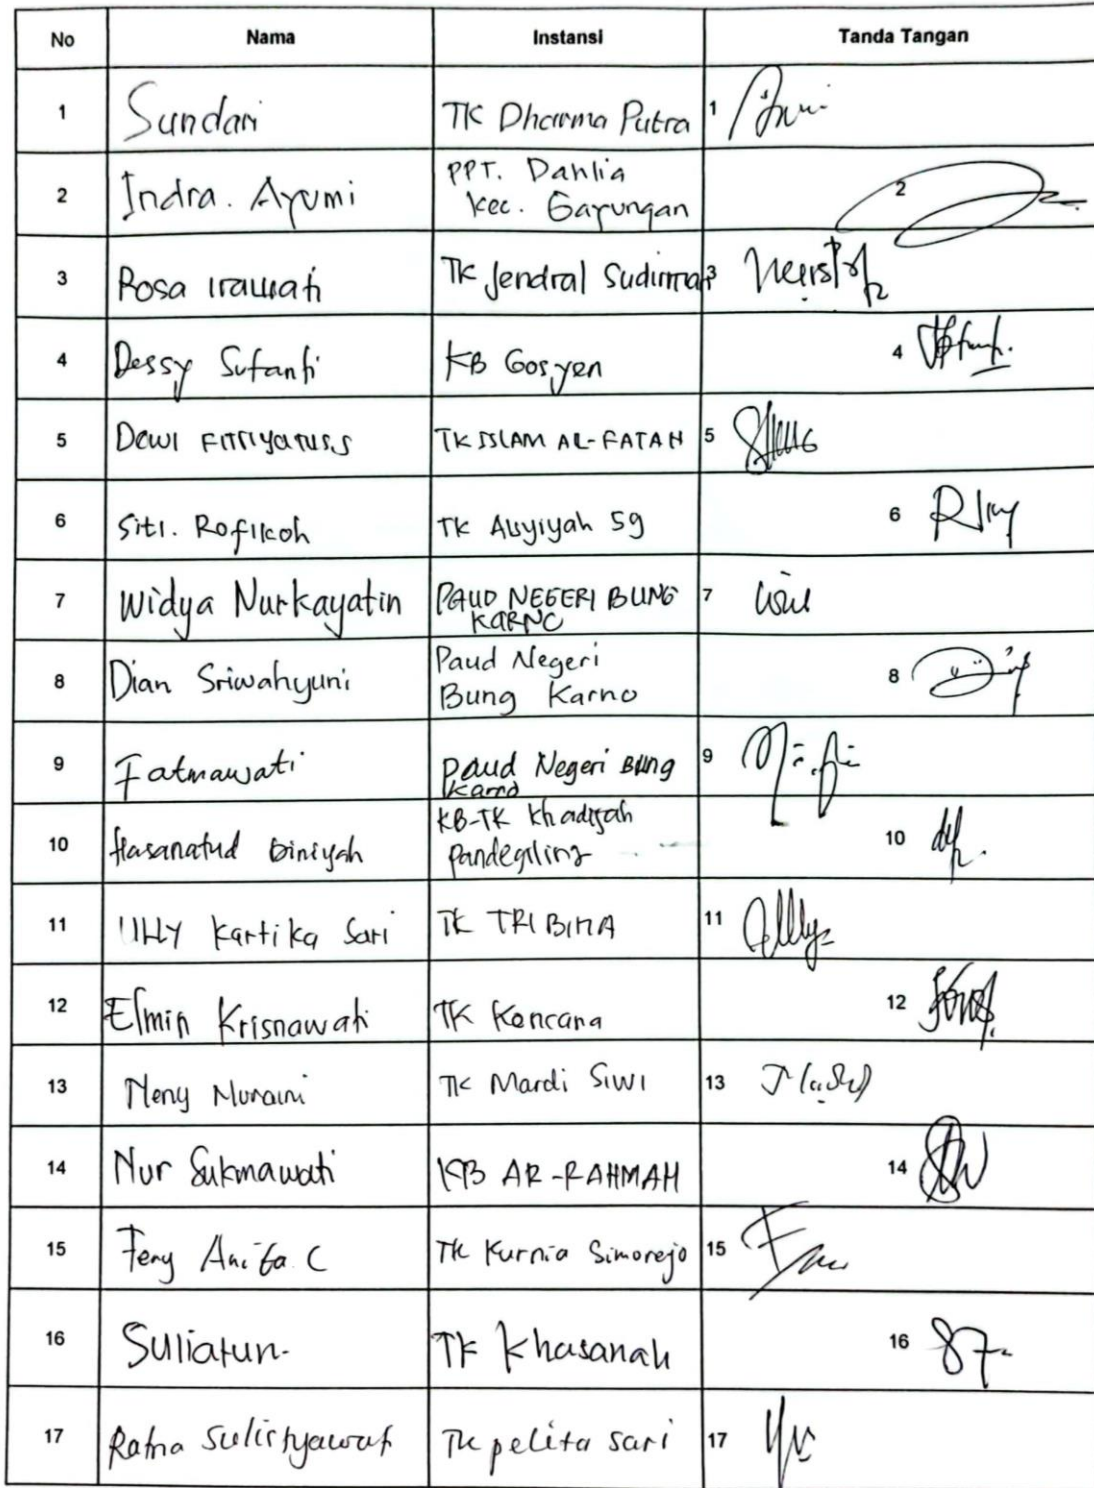 No Nama Instansi Tanda Tangan
1 Sundari TK Dharma Putra 1
2 Indra. Ayumi PPT. Dahlia
Kec. Gayungan 2
3 Rosa Irawati TK Jendral Sudirman 3
4 Dessy Sufanti KB Gosyen 4
5 Dewi Fitriyatus.S TK ISLAM AL-FATAH 5
6 Siti. Rofikoh TK Aisyiyah 59 6
7 Widya Nurkayatin PAUD NEGERI BUNG
KARNO 7
8 Dian Sriwahyuni Paud Negeri
Bung Karno 8
9 Fatmawati Paud Negeri Bung
Karno 9
10 Hasanatud Diniyah KB-TK Khadijah
Pandegiling 10
11 Ully Kartika Sari TK TRI BINA 11
12 Elmin Krisnawati TK Kencana 12
13 Neny Nuraini TK Mardi Siwi 13
14 Nur Sukmawati KB AR-RAHMAH 14
15 Feny Anita C TK Kurnia Simorejo 15
16 Suliatun TK Khasanah 16
17 Ratna Sulistyawati TK Pelita Sari 17